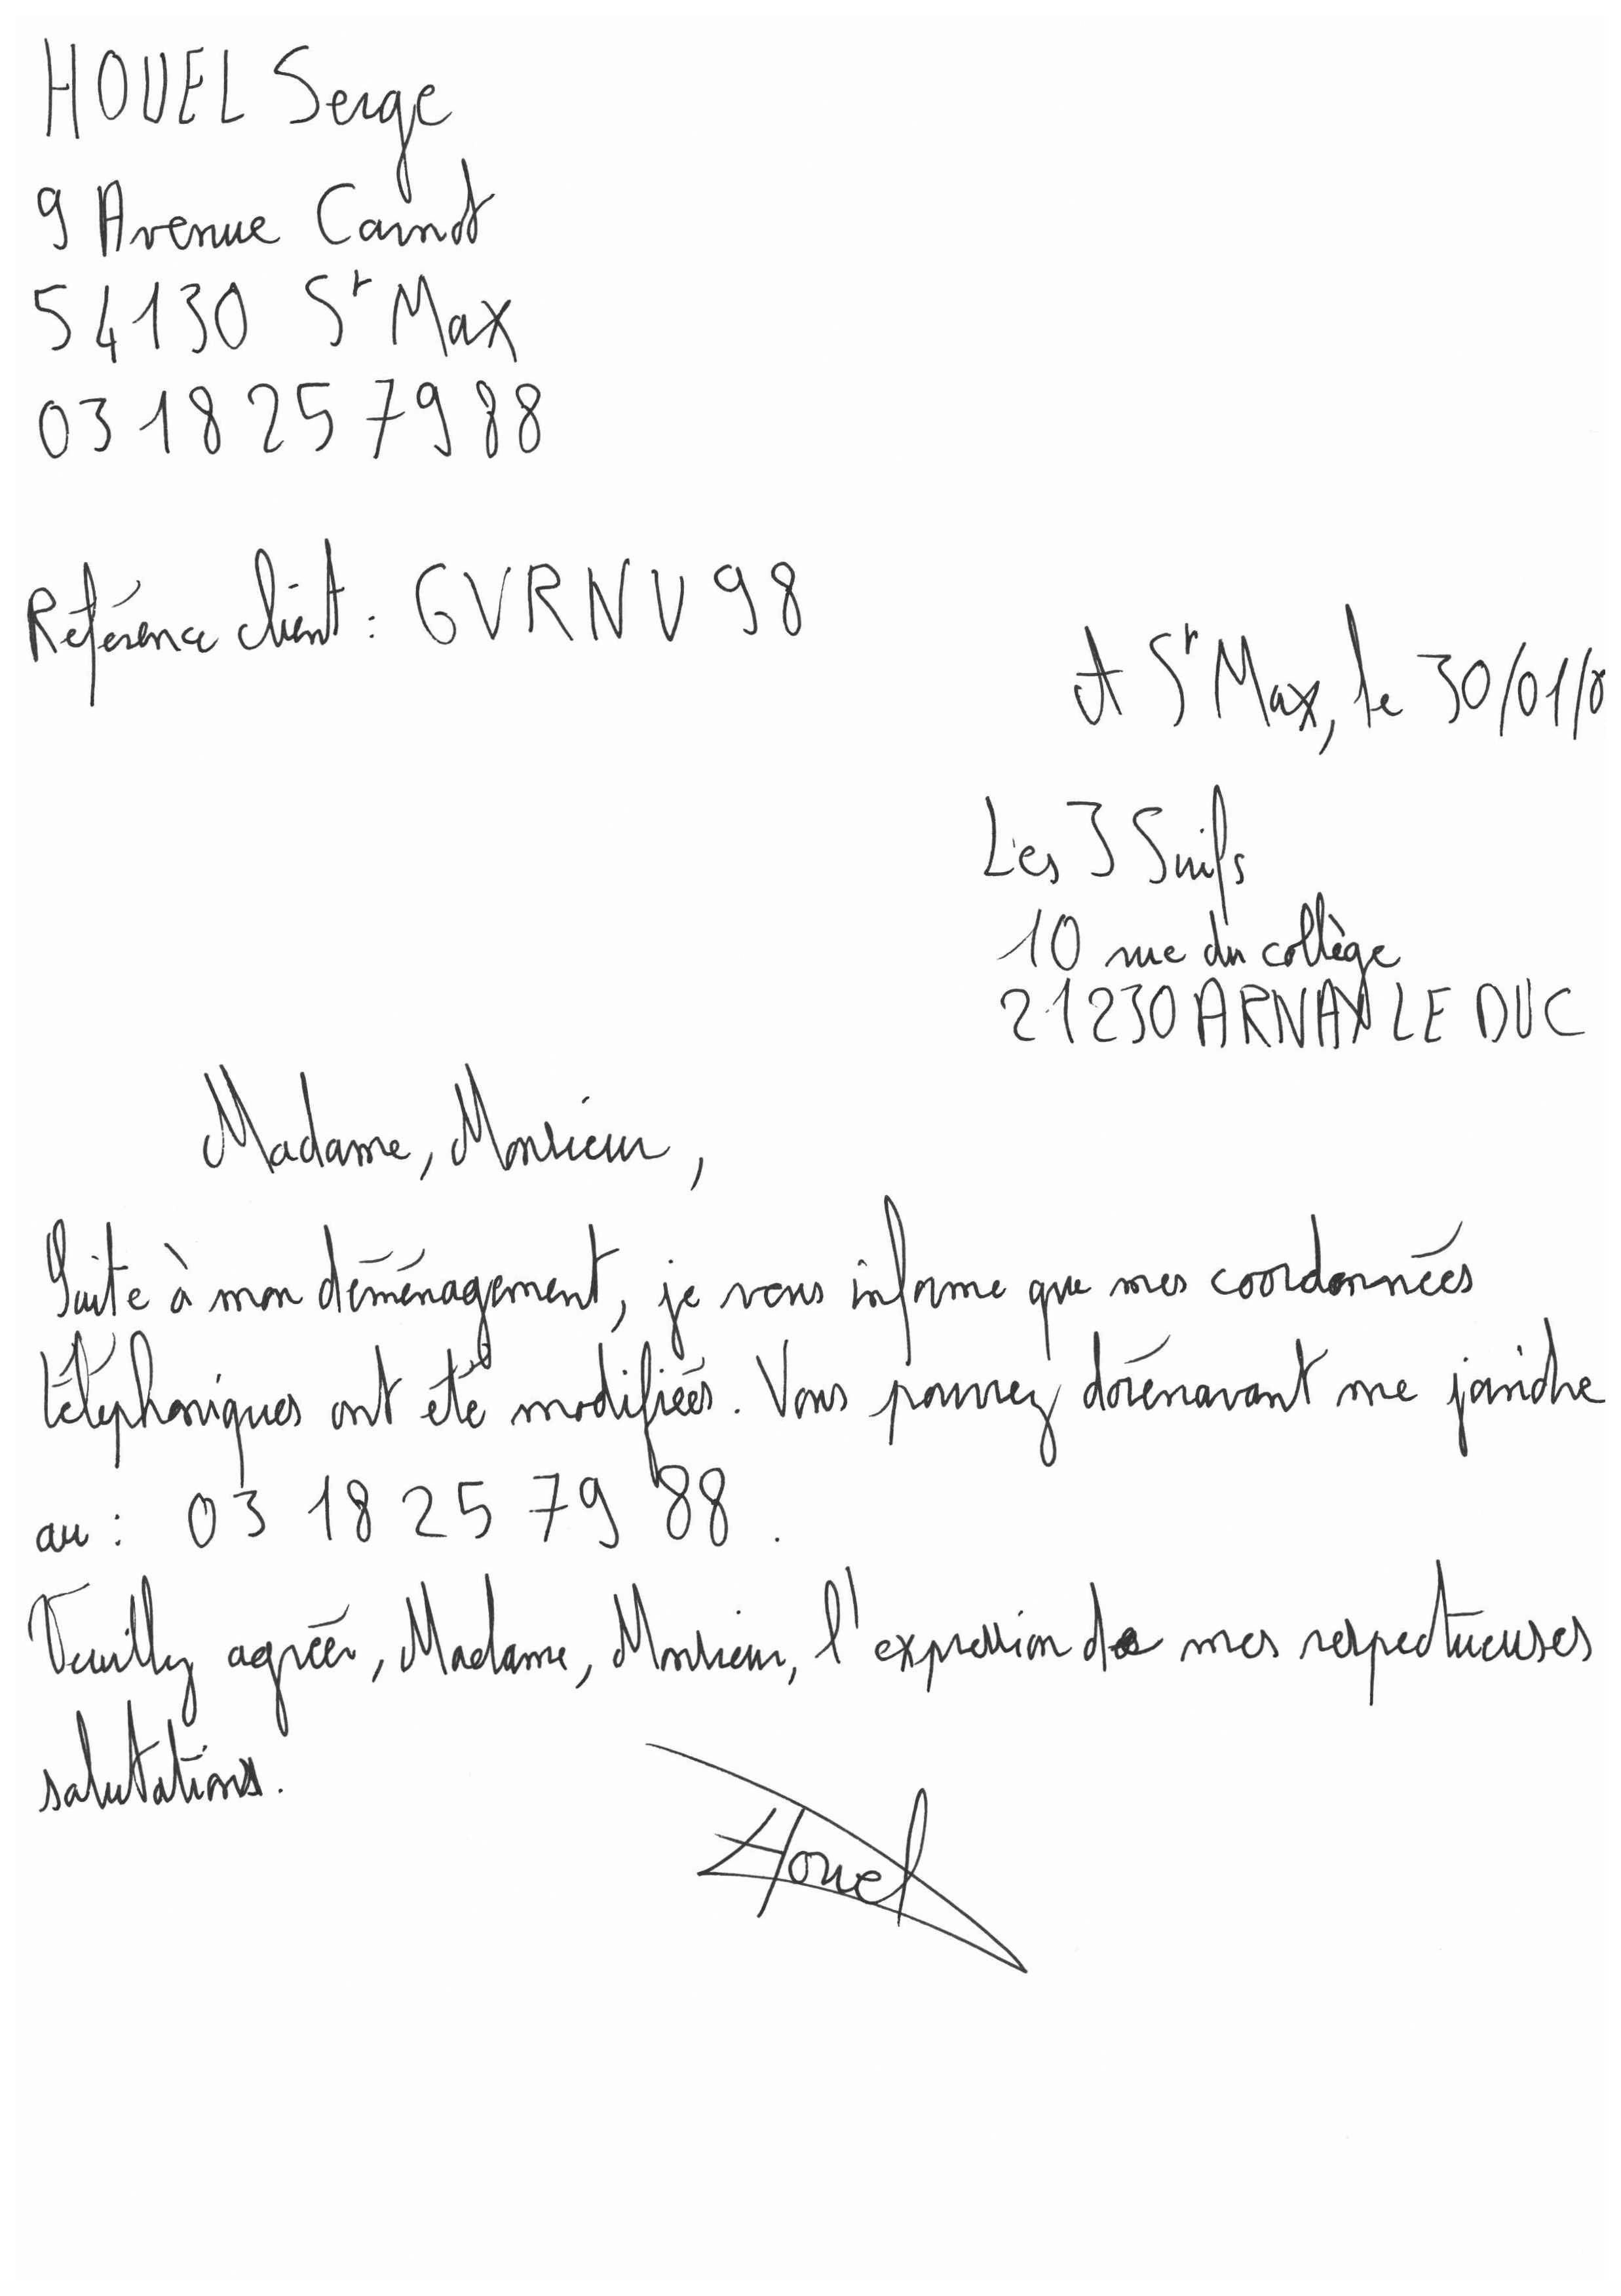 HOUEL Serge
9 Avenue Carnot
54130 St Max
03 18 25 79 88
Référence client : GVRNV98
A St Max, le 30/01/0
Les 3 Suifs
10 rue du collège
21230 ARNAY LE DUC
Madame, Monsieur,
Suite à mon déménagement, je vous informe que mes coordonnées
téléphoniques ont été modifiées. Vous pourrez dorénavant me joindre
au : 03 18 25 79 88.
Veuillez agréer, Madame, Monsieur, l'expression de mes respectueuses
salutations.
Houel